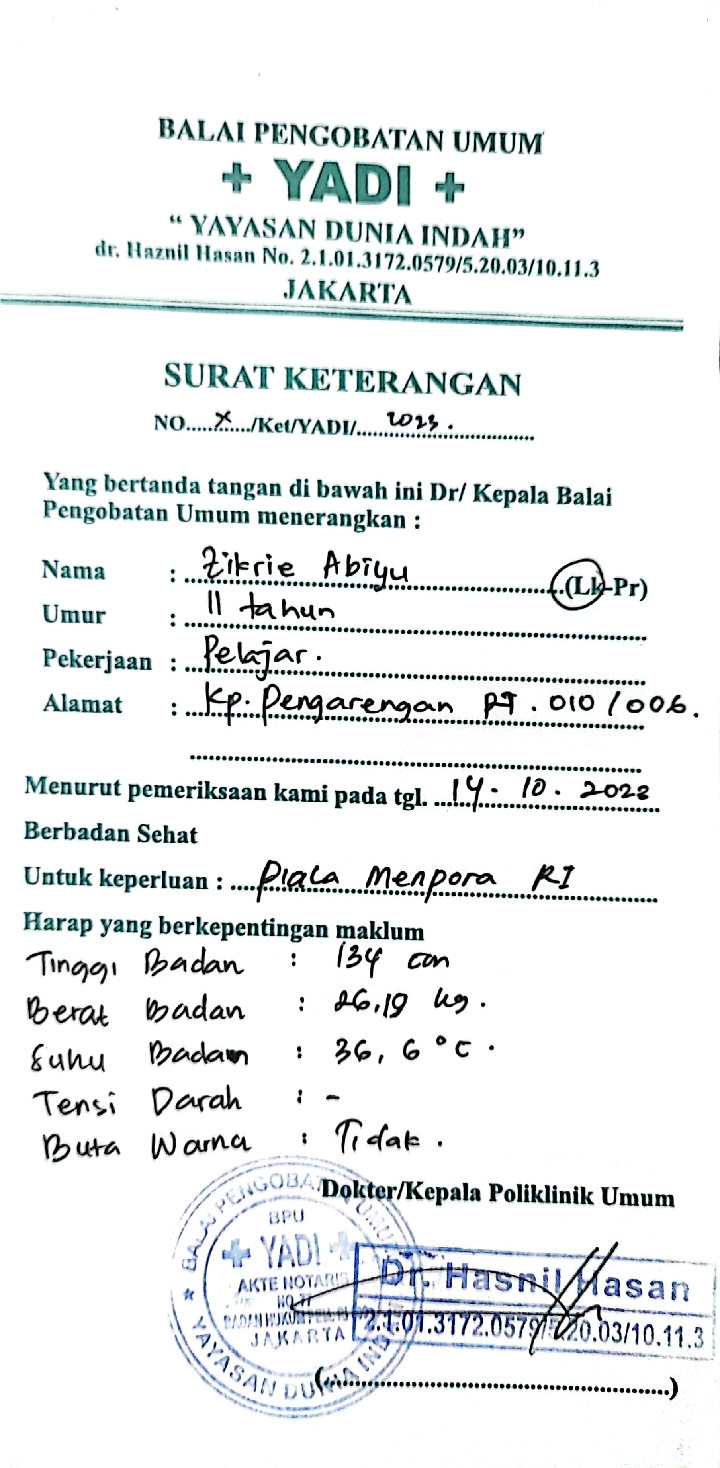 BALAI PENGOBATAN UMUM
+ YADI +
“ YAYASAN DUNIA INDAH”
dr. Haznil Hasan No. 2.1.01.3172.0579/5.20.03/10.11.3
JAKARTA
SURAT KETERANGAN
NO.....X...../Ket/YADI/.....2023.
Yang bertanda tangan di bawah ini Dr/ Kepala Balai
Pengobatan Umum menerangkan :
Nama : Zikrie Abiyu (Lk-Pr)
Umur : 11 tahun
Pekerjaan : Pelajar.
Alamat : Kp. Pengarengan RT. 010 / 006.
Menurut pemeriksaan kami pada tgl. 14 - 10 . 2023
Berbadan Sehat
Untuk keperluan : Piala Menpora RI
Harap yang berkepentingan maklum
Tinggi Badan : 134 cm
Berat Badan : 26,19 kg.
Suhu Badan : 36, 6 °C.
Tensi Darah : -
Buta Warna : Tidak.
Dokter/Kepala Poliklinik Umum
BALAI PENGOBATAN UMUM
BPU
+ YADI +
AKTE NOTARIS
NO. 11
BADAN HUKUM
JAKARTA
YAYASAN DUNIA INDAH
Dr. Hasnil Hasan
2.1.01.3172.0579/5.20.03/10.11.3
(..........)